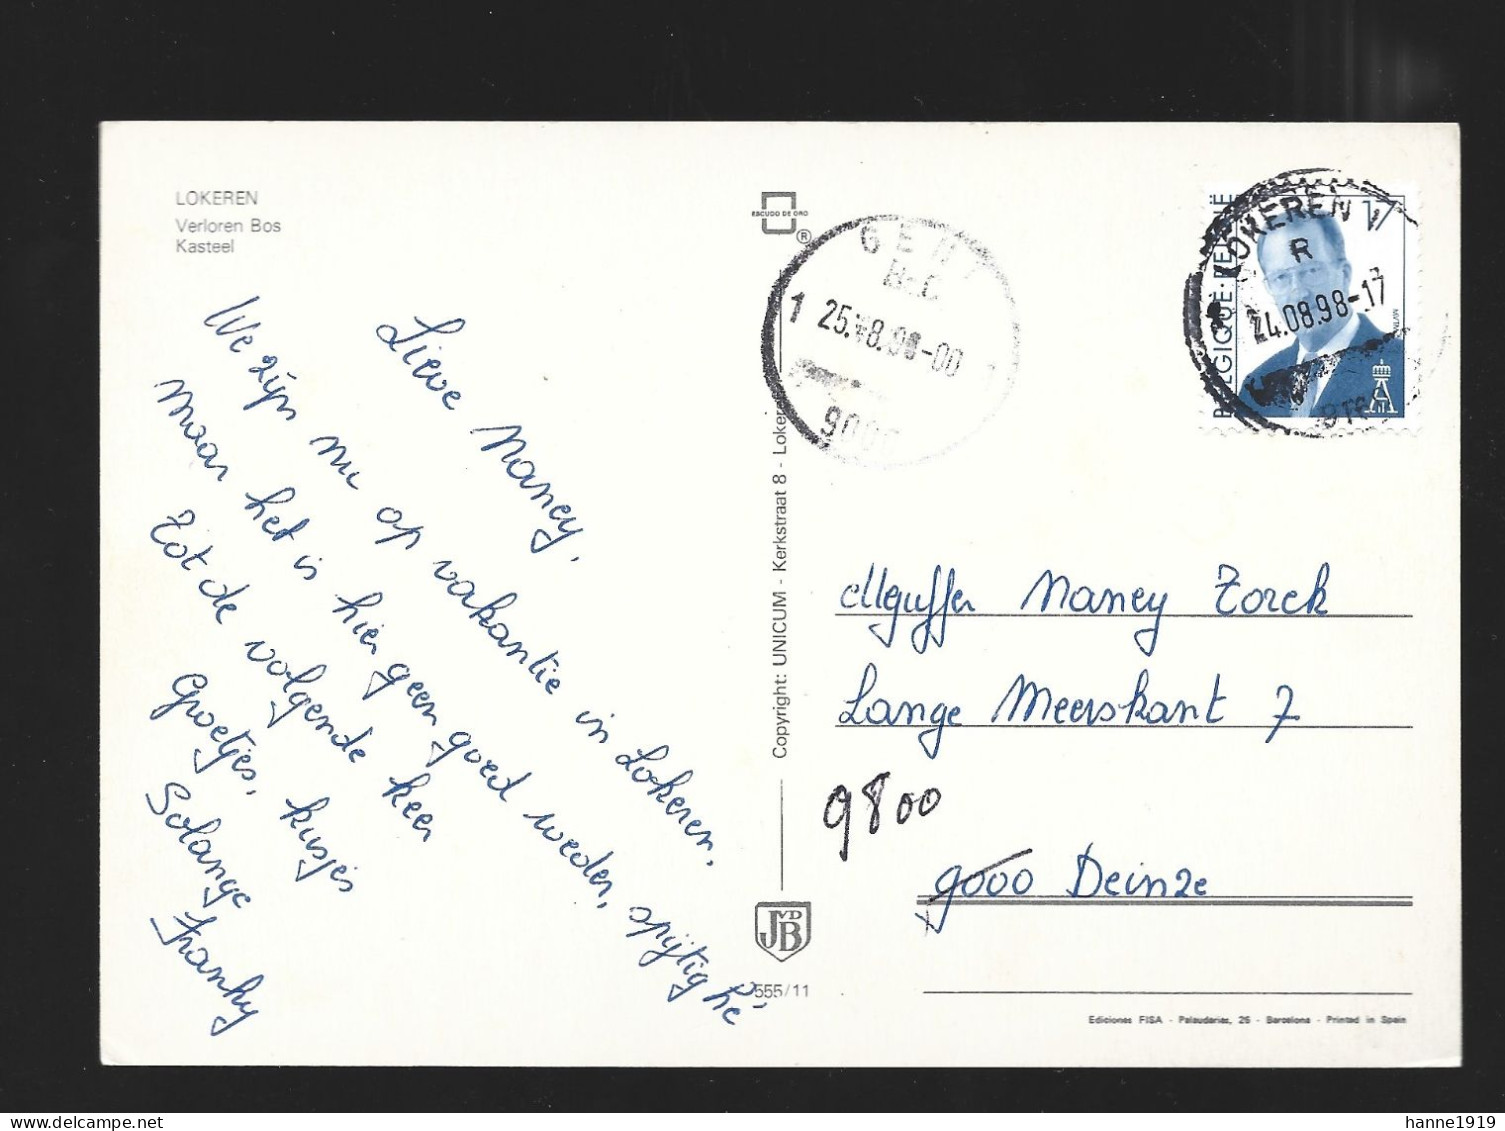 LOKEREN
Verloren Bos
Kasteel
Lieve Nancy,
We zijn nu op vakantie in Lokeren.
maar het is hier geen goed weder, spijtig hé
Tot de volgende keer
Groetjes, kusjes
Solange
Franky
ESCUDO DE ORO
®
Copyright: UNICUM - Kerkstraat 8 - Loker
JVDB
555/11
GENT
1 25.08.98-00
9000
BELGIQUE-BELGIË
17
LOKEREN 1
R
24.08.98-17
Mejuffer Nancy Torck
Lange Meerskant 7
9800
9000 Deinze
Ediciones FISA - Palaudarias, 26 - Barcelona - Printed in Spain
hanne1919